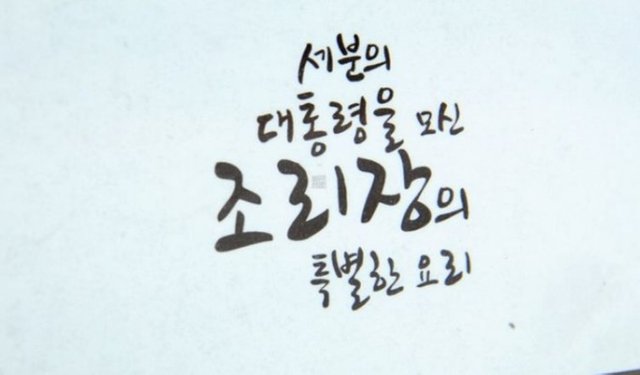 세분의
대통령을 모신
조리장의
특별한 요리